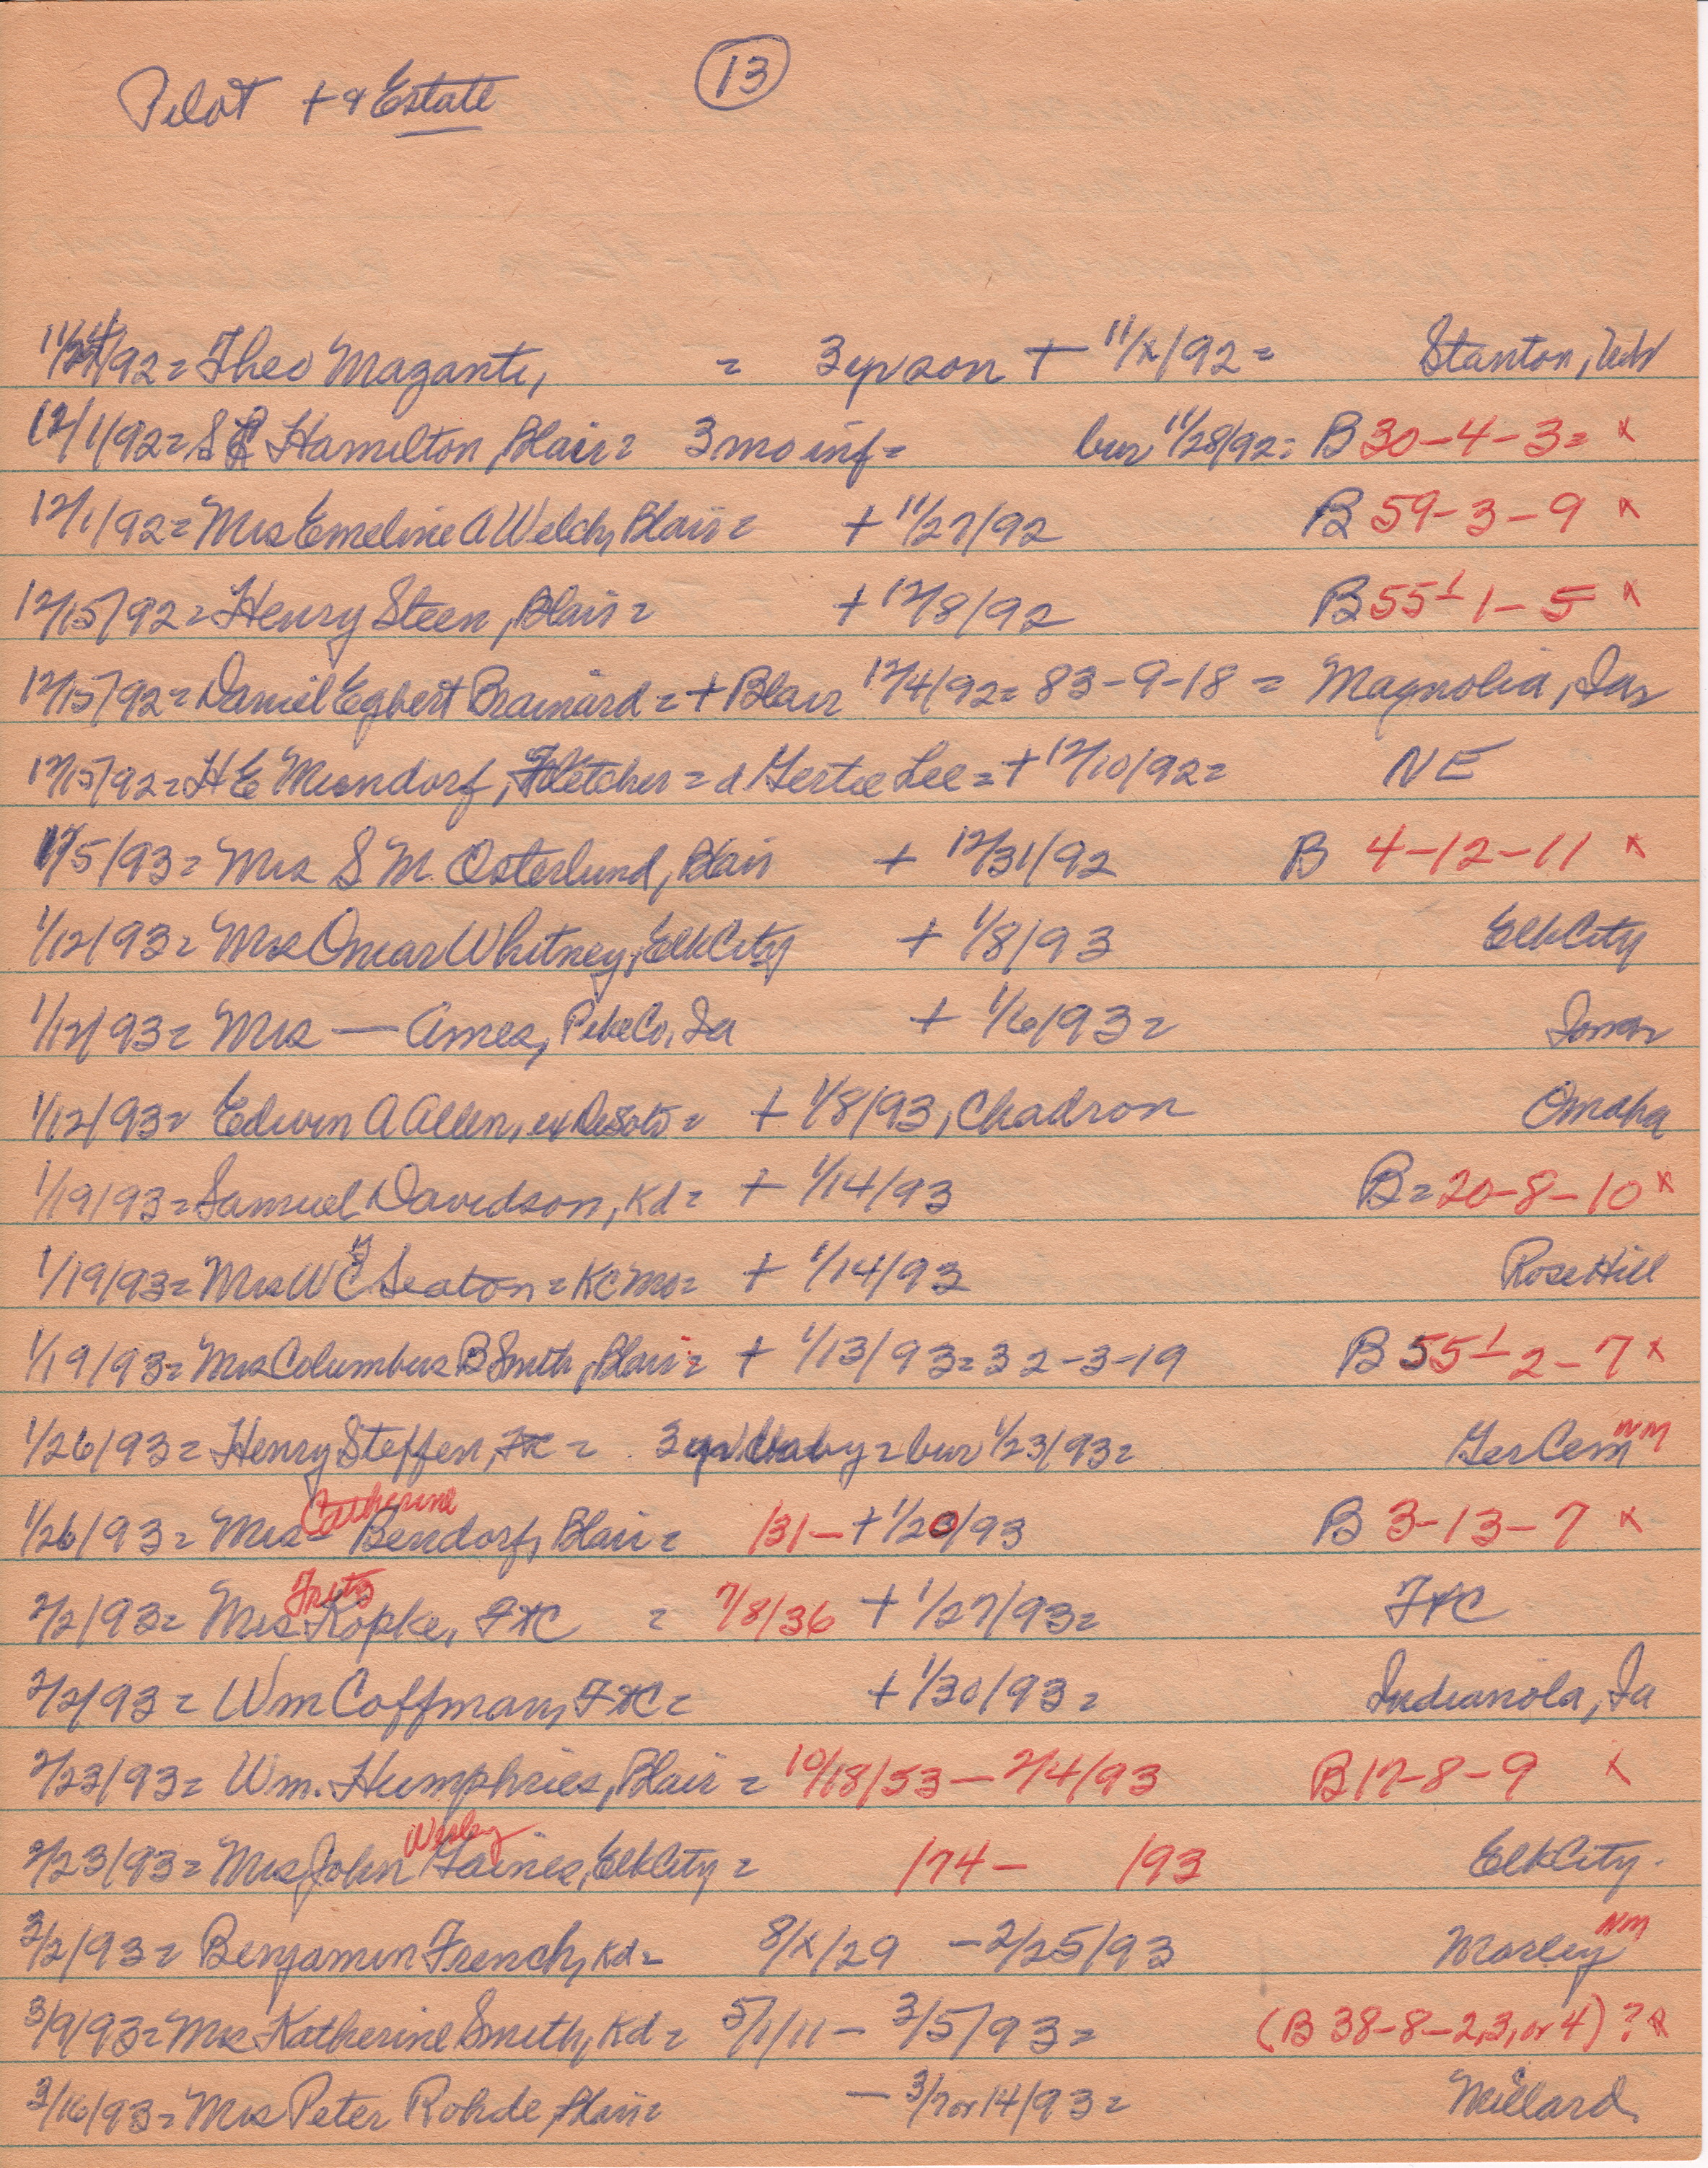 Pilot + & Estate
13
11/24/92 = Theo Maganti, = 3 yr son + 11/x/92 = Stanton, Neb
12/1/92 = S Hamilton, Blair = 3 mo inf = bur 11/28/92 = B 30-4-3 = x
12/1/92 = Mrs Emeline A Welch, Blair = + 11/27/92 B 59-3-9 x
12/15/92 = Henry Steen, Blair = + 12/8/92 B 55½ 1-5 x
12/15/92 = Daniel Egbert Brainard = + Blair 12/4/92 = 83-9-18 = Magnolia, Ia
12/15/92 = H E Mundorf, Fletcher = d Gertie Lee = + 12/10/92 = NE
1/5/93 = Mrs S M. Osterlund, Blair + 12/31/92 B 4-12-11 x
1/12/93 = Mrs Omar Whitney, Elk City + 1/8/93 Elk City
1/12/93 = Mrs — Ames, Pike Co, Ia + 1/6/93 = Iowa
1/12/93 = Edwin A Allen, ex DeSoto = + 1/8/93, Chadron Omaha
1/19/93 = Samuel Davidson, Kd = + 1/14/93 B = 20-8-10 x
1/19/93 = Mrs W Seaton = KC Mo = + 1/14/93 Rose Hill
1/19/93 = Mrs Columbus B Smith, Blair = + 1/13/93 = 32-3-19 B 55½ 2-7 x
1/26/93 = Henry Steffen, FtC = 3 yr baby = bur 1/23/93 = Ger Cem NM
1/26/93 = Mrs Catherine Bendorf, Blair = /31- + 1/20/93 B 3-13-7 x
2/2/93 = Mrs Fritz Kopke, FtC = 7/8/36 + 1/27/93 = FtC
2/2/93 = Wm Coffman, FtC = + 1/30/93 = Indianola, Ia
2/23/93 = Wm. Humphries, Blair = 10/18/53 - 2/4/93 B 17-8-9 x
2/23/93 = Mrs John Wesley Gaines, Elk City = /74- /93 Elk City.
3/2/93 = Benjamin French, Kd = 8/x/29 - 2/25/93 Morley NM
3/9/93 = Mrs Katherine Smith, Kd = 5/1/11 - 3/5/93 = (B 38-8-2,3, or 4) ? x
3/16/93 = Mrs Peter Rohde, Blair = - 3/7 or 14/93 = Millard